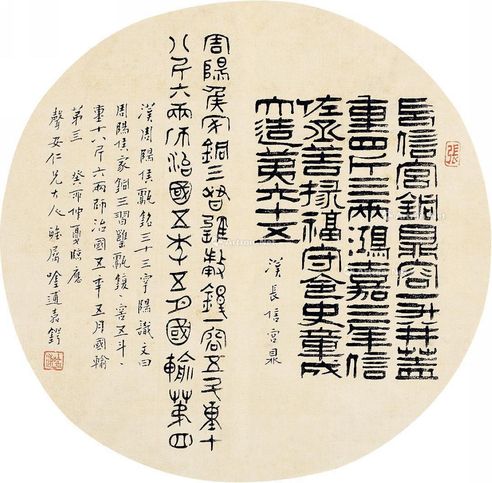 長信宮銅鼎容一斗并蓋
重四斤三兩鴻嘉三年信
佐丞善掾福守金史章成
大造第六十五
漢長信宮鼎
周陽侯家銅三習甗鍑一容五斗重十
八斤六兩師治國五年五月國輸第四
漢周陽侯甗銘三十三字陽識文曰
周陽侯家銅三習甗鍑容五斗
重十八斤六兩師治國五年五月國輸
第三 仲夏應
聲安仁兄大人雅屬 嘉
張